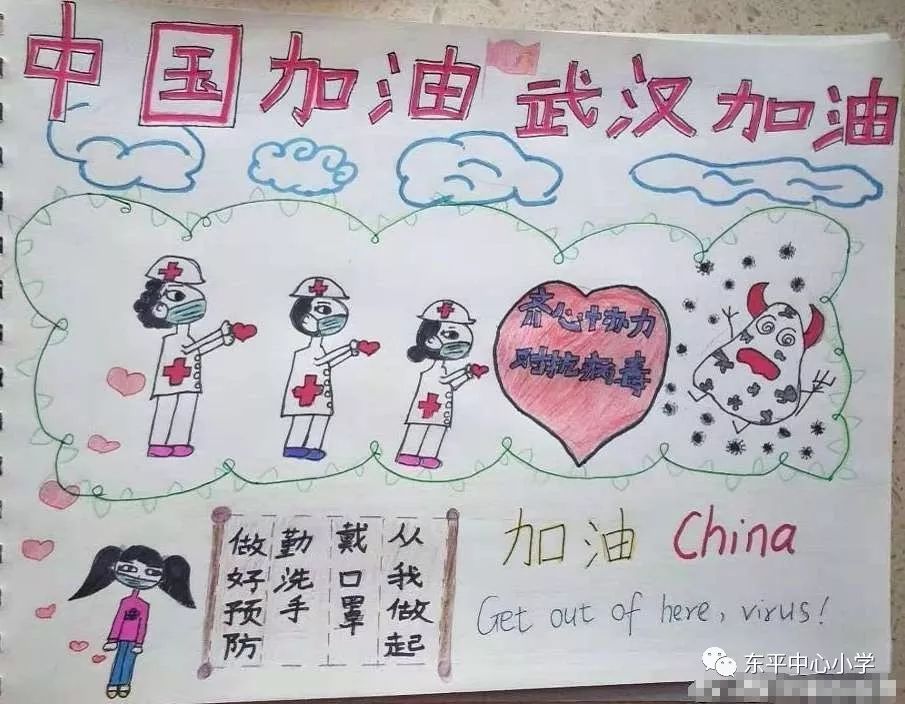 中国加油 武汉加油
齐心协力
对抗病毒
从我做起
戴口罩
勤洗手
做好预防
加油 China
Get out of here, virus!
东平中心小学